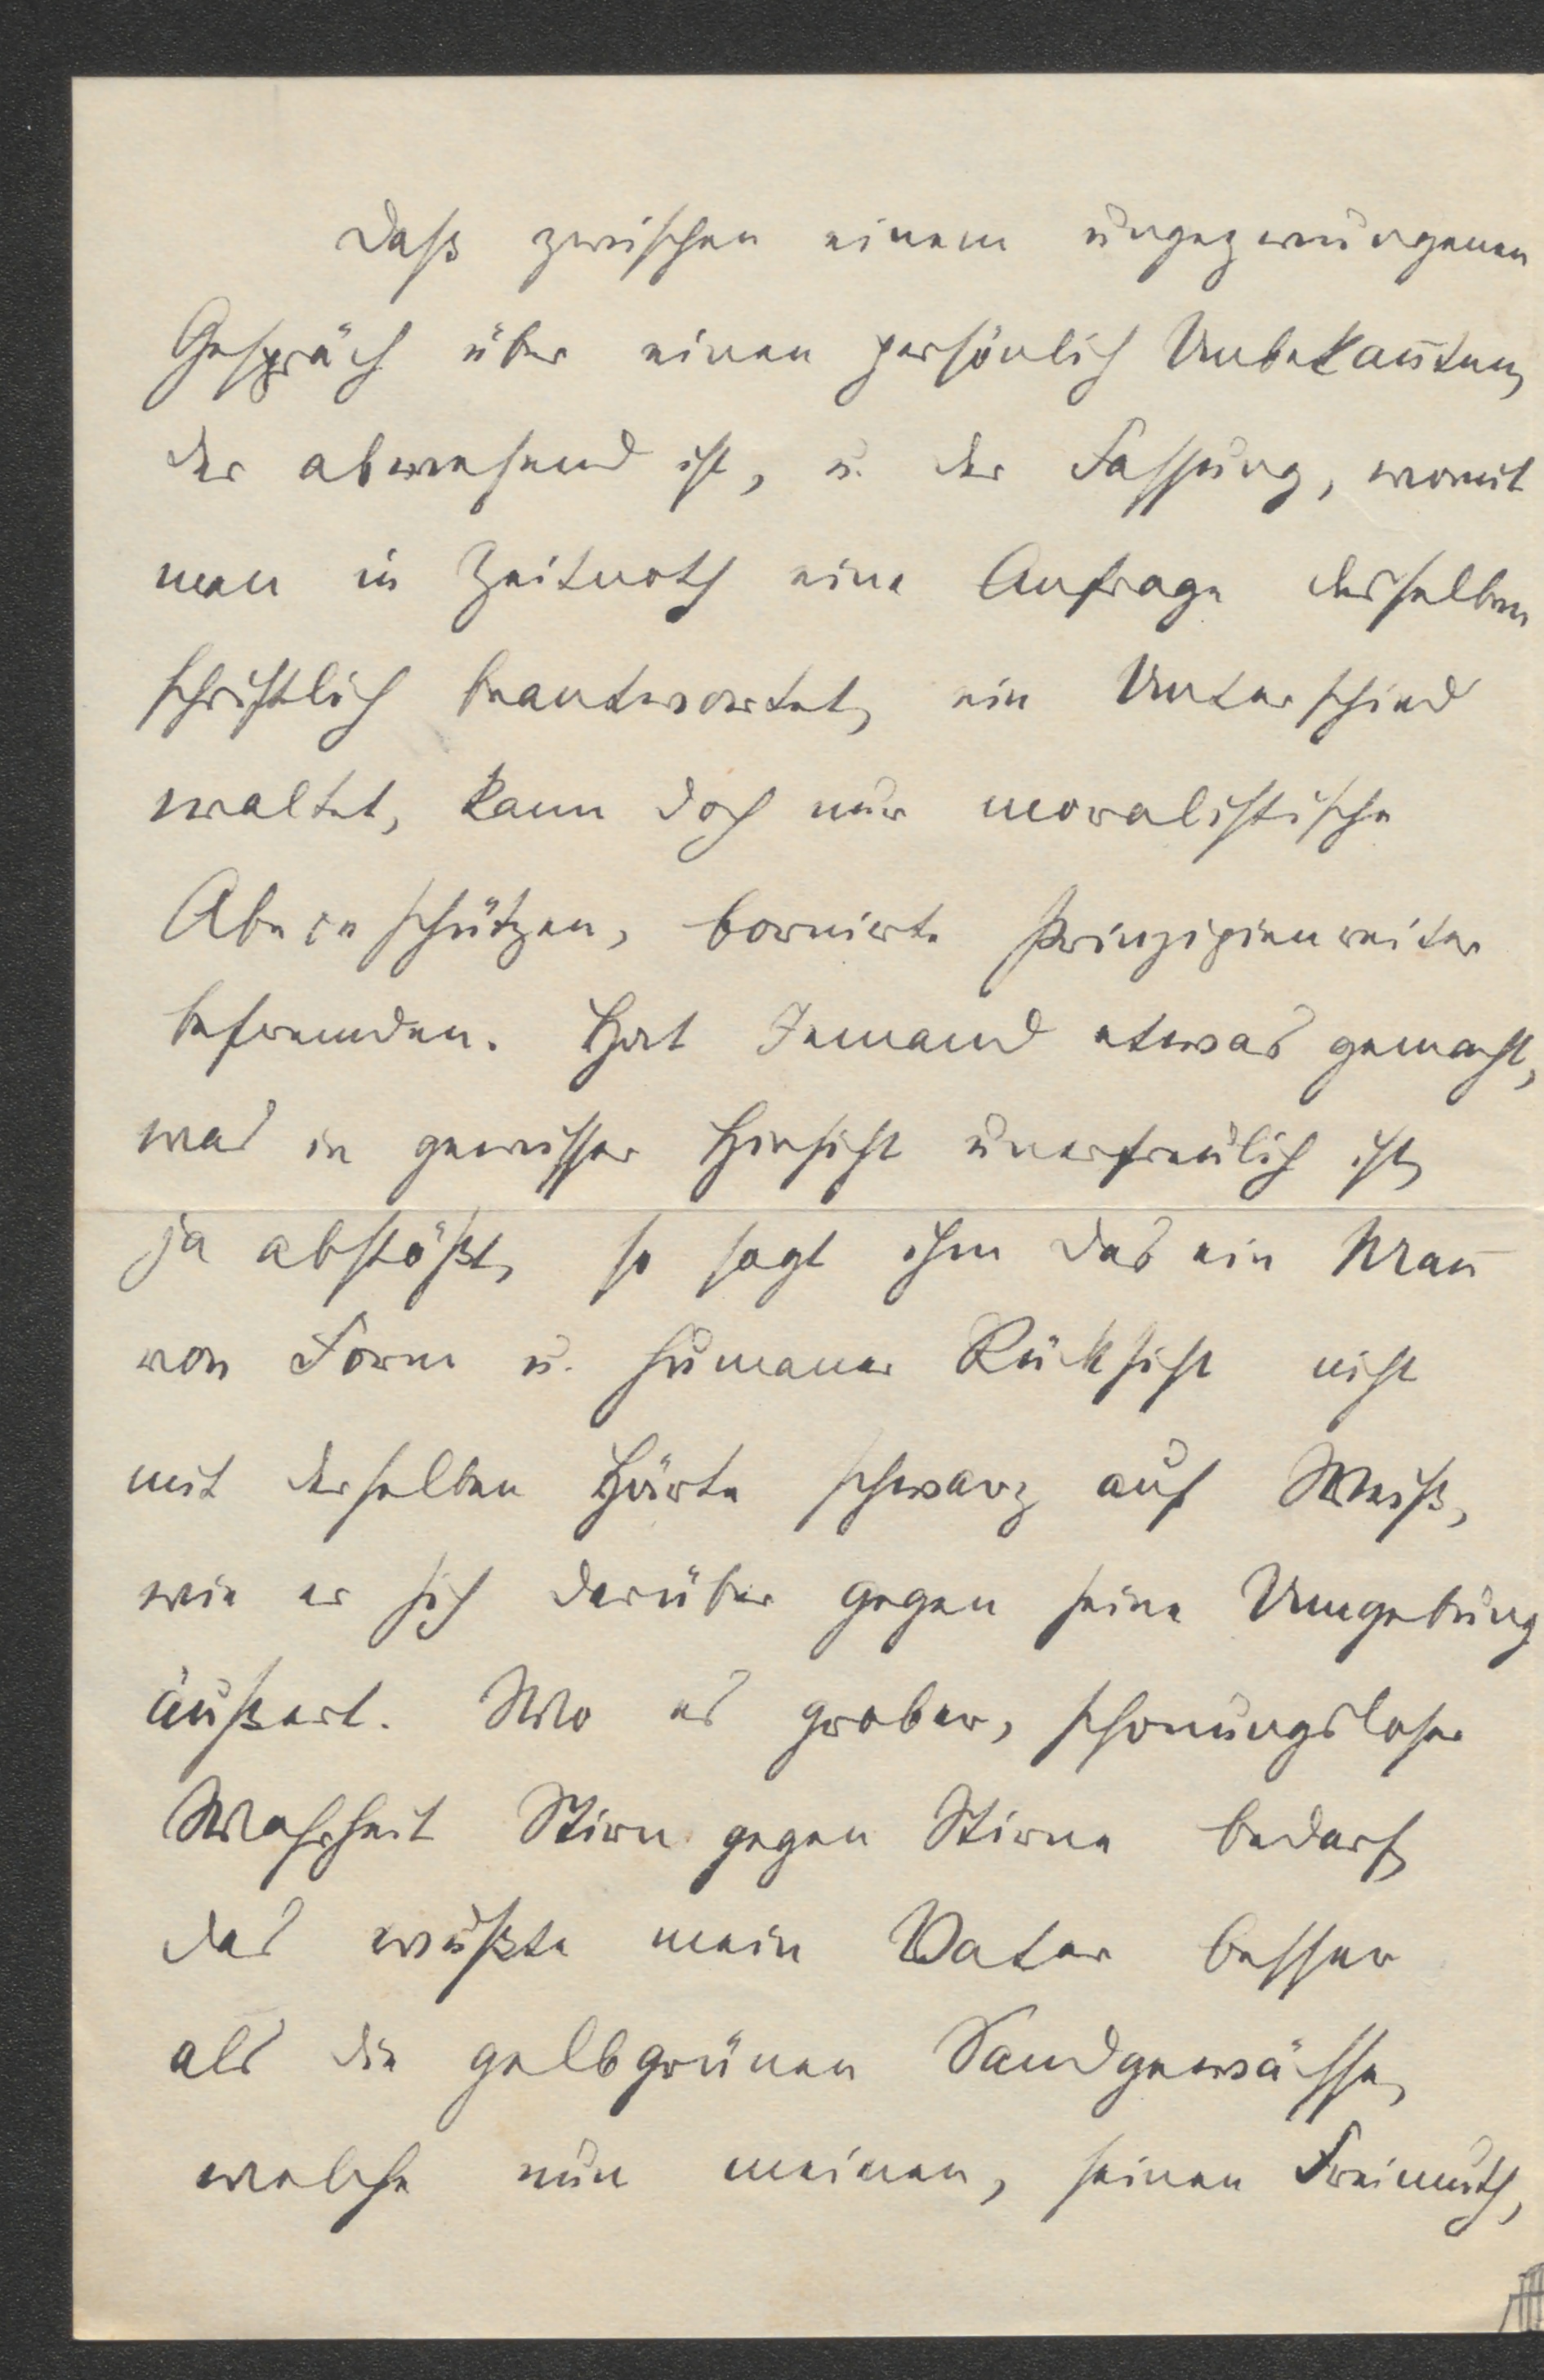 Daß zwischen einem ungezwungenen
Gespräch über einen persönlich Unbekan̄ten,
der abwesend ist, u. der Fassung, womit
man in Zeitnoth eine Anfrage desselben
schriftlich beantwortet, ein Unterschied
waltet, kann doch nur moralistische
Abcschützen, bornirte Prinzipienreiter
befremden. Hat Jemand etwas gemacht,
was in gewisser Hinsicht unerfreulich ist,
ja abstößt, so sagt ihm das ein Man̄
von Form u. humaner Rücksicht nicht
mit derselben Härte schwarz auf Weiß,
wie er sich darüber gegen seine Umgebung
äußert. Wo es grober, schonungsloser
Wahrheit Stirn gegen Stirne bedarf,
das wußte mein Vater besser
als die gelbgrünen Sandgewächse,
welche nun meinen, seinen Freimuth,